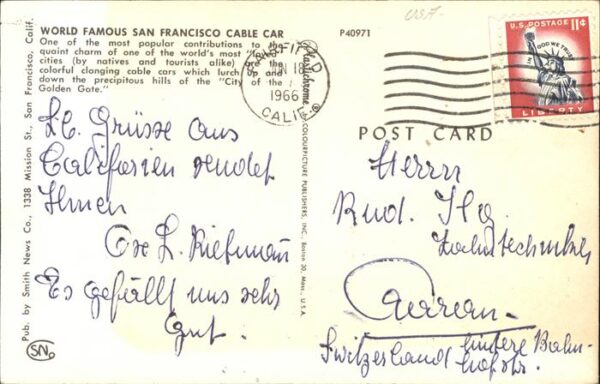 WORLD FAMOUS SAN FRANCISCO CABLE CAR
One of the most popular contributions to the
quaint charm of one of the world's most
cities (by natives and tourists alike) are the
colorful clanging cable cars which lurch up and
down the precipitous hills of the "City of the
Golden Gate."
P40971
USA
CALIF.
1966
U.S. POSTAGE 11¢
IN GOD WE TRUST
LIBERTY
Plastichrome®
COLOURPICTURE PUBLISHERS, INC., Boston 30, Mass., U.S.A.
Pub. by Smith News Co., 1338 Mission St., San Francisco, Calif.
SN
POST CARD
Lb. Grüsse aus
Califorien sendet
Ihnen
L.
Es gefällt uns sehr
gut.
Herrn
Rud. Ilg
Zahntechniker
Aarau
Hintere Bahn-
hofstr.
Switzerland